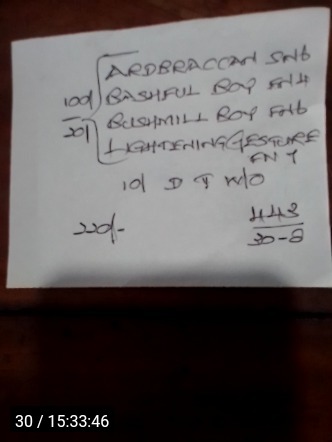 ARDBRACCAN SN6
BASHFUL BOY FN4
BUSHMILL BOY FN6
LIGHTENING GESTURE
FN 7
10/
20/
10/ D T W/O
220/-
443
30-8
30 / 15:33:46